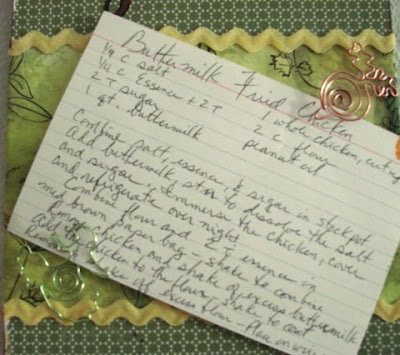 Buttermilk Fried Chicken
1/4 C salt
1/4 C Essence + 2 T
2 T sugar
1 qt. buttermilk
whole chicken, cut up
2 c flour
peanut oil
Combine salt, essence, & sugar in stockpot
Add buttermilk stir to dissolve the salt
and sugar. Immerse the chicken, cover
and refrigerate over night
Combine flour and 2 T essence in
med brown paper bag - shake to combine
Remove chicken and shake of excess buttermilk
Add the chicken to the flour, shake to coat
Remove, shake of excess flour - Place on